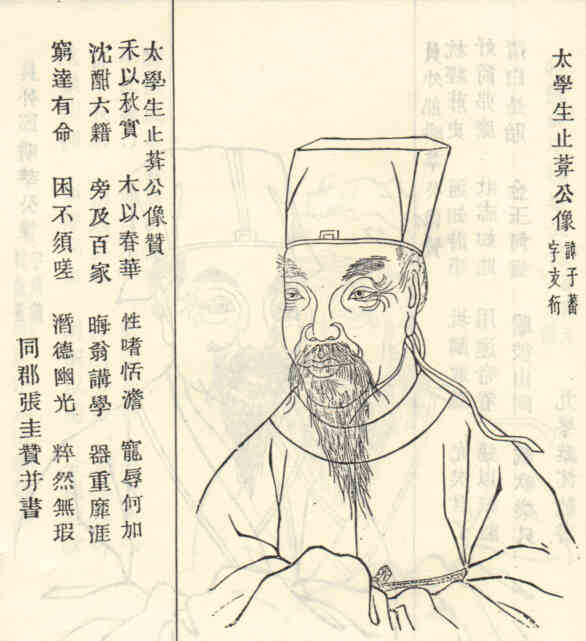 太學生止葊公像
諱子蕃
字支衍
太學生止葊公像贊
禾以秋實 木以春華 性嗜恬澹 寵辱何加
沈酣六籍 旁及百家 晦翁講學 器重靡涯
窮達有命 困不須嗟 潛德幽光 粹然無瑕
同郡張圭贊并書